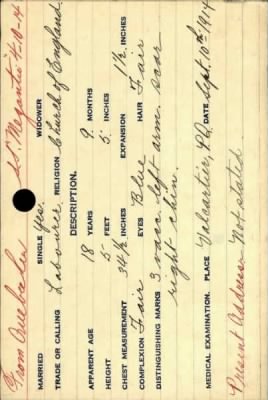 From Quebec S.S. Megantic 4-10-14
MARRIED SINGLE Yes. WIDOWER
TRADE OR CALLING Labourer. RELIGION Church of England.
DESCRIPTION.
APPARENT AGE 18 YEARS 9 MONTHS
HEIGHT 5 FEET 5 INCHES
CHEST MEASUREMENT 34½ INCHES EXPANSION 1½ INCHES
COMPLEXION Fair EYES Blue HAIR Fair
DISTINGUISHING MARKS 3 vacc left arm. scar
right shin.
MEDICAL EXAMINATION. PLACE Valcartier, P.Q. DATE Sept. 10th 1914
Present Address Not stated